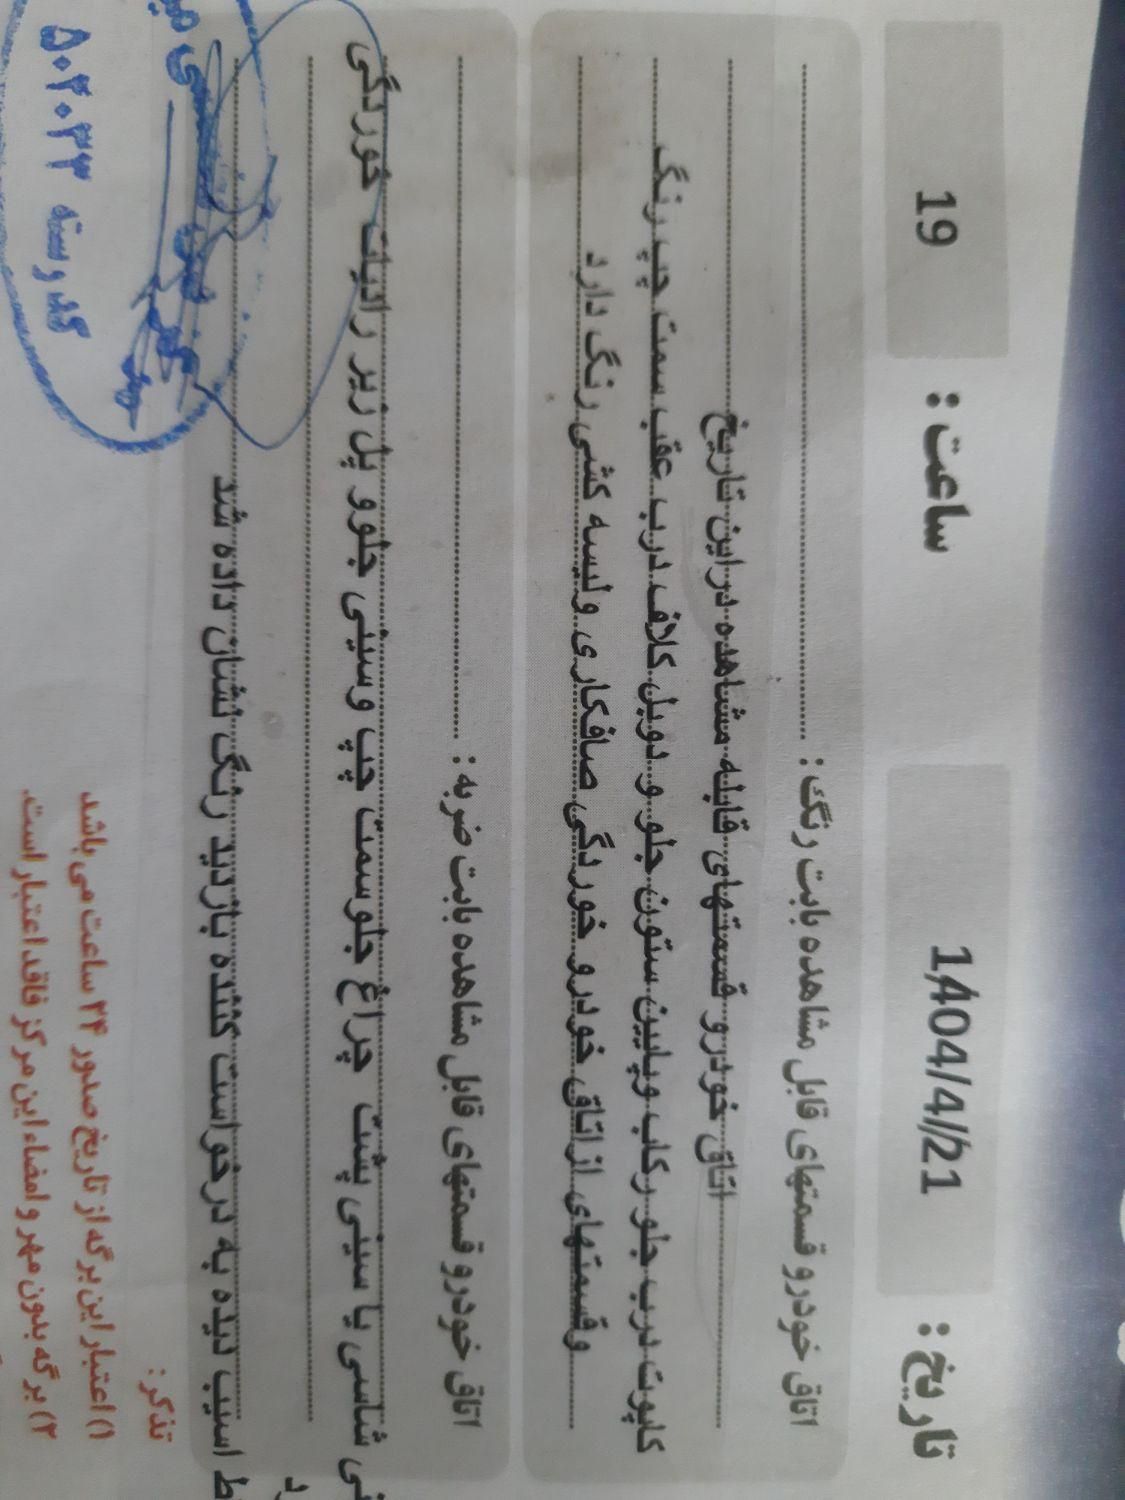 تاریخ : 1404/4/21 ساعت : 19
اتاق خودرو قسمتهای قابل مشاهده بابت رنگ :
اتاق خودرو قسمتهای قابله مشاهده در این تاریخ
کاپوت درب جلو رکاب و پایین ستون جلو و دوبل کلاف درب عقب سمت چپ رنگ
و قسمتهای از اتاق خودرو خوردگی صافکاری و لیسه کشی رنگ دارد
اتاق خودرو قسمتهای قابل مشاهده بابت ضربه :
شاسی یا سینی پشت چراغ جلو سمت چپ و سینی جلو و پل زیر رادیات خوردگی
اسیب دیده به درخواست کننده بازدید رنگ نشان داده شد
تذکر :
۱) اعتبار این برگه از تاریخ صدور ۲۴ ساعت می باشد
۲) برگه بدون مهر و امضاء این مرکز فاقد اعتبار است.
کد رسته ۵۰۲۰۳۳